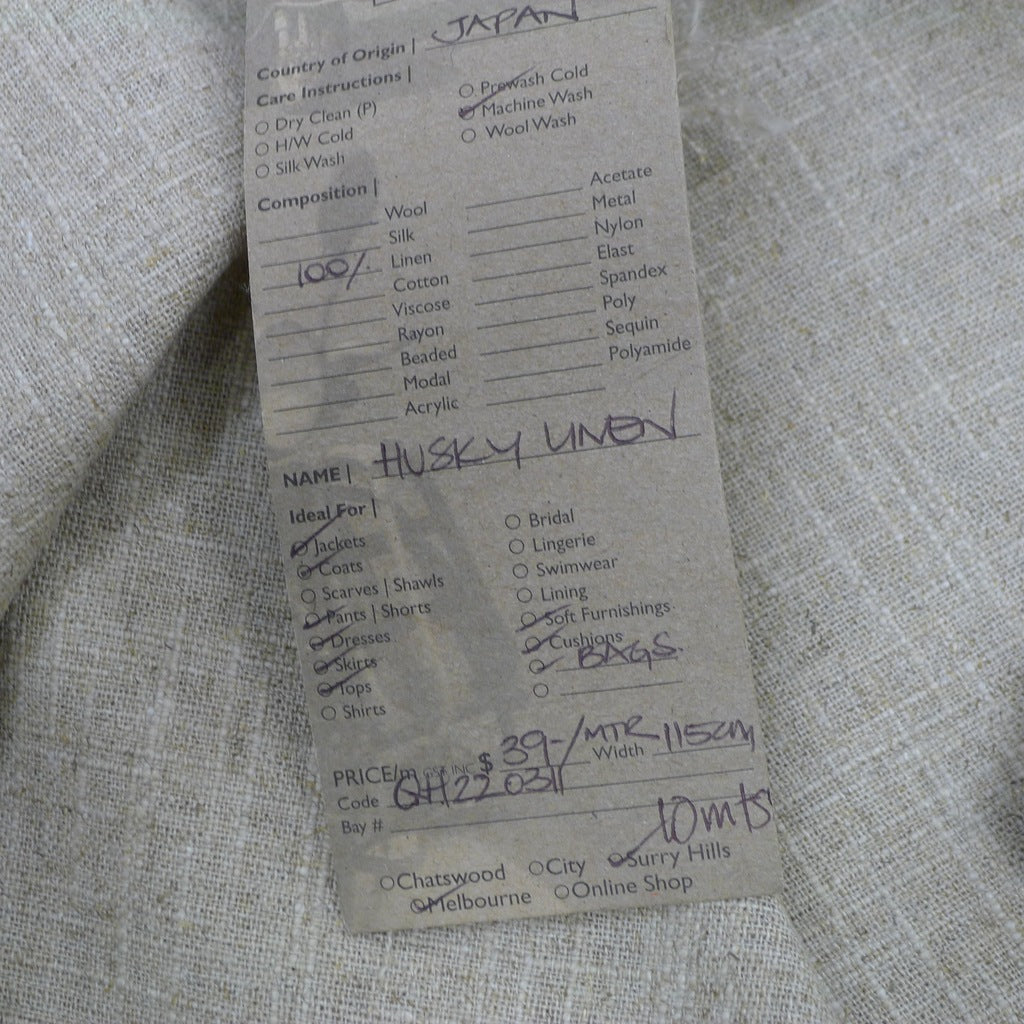 Country of Origin | JAPAN
Care Instructions |
Dry Clean (P)
H/W Cold
Silk Wash
Prewash Cold
Machine Wash
Wool Wash
Composition |
Wool
Silk
100% Linen
Cotton
Viscose
Rayon
Beaded
Modal
Acrylic
Acetate
Metal
Nylon
Elast
Spandex
Poly
Sequin
Polyamide
NAME | HUSKY LINEN
Ideal For |
Jackets
Coats
Scarves | Shawls
Pants | Shorts
Dresses
Skirts
Tops
Shirts
Bridal
Lingerie
Swimwear
Lining
Soft Furnishings
Cushions
BAGS.
PRICE/m GST INC $ 39-/MTR Width 115cm
Code QH22 0311
Bay #
10mts
Chatswood City Surry Hills
Melbourne Online Shop